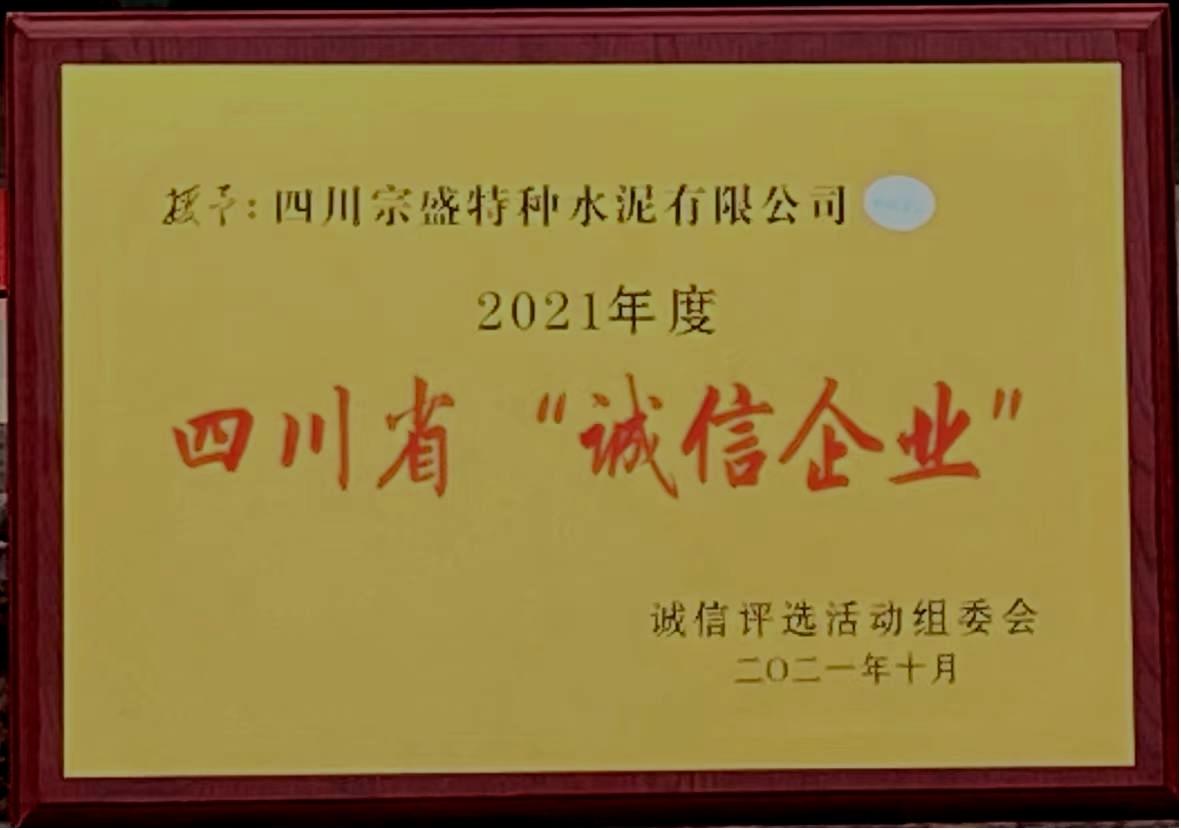 授予：四川宗盛特种水泥有限公司
2021年度
四川省“诚信企业”
诚信评选活动组委会
二〇二一年十月